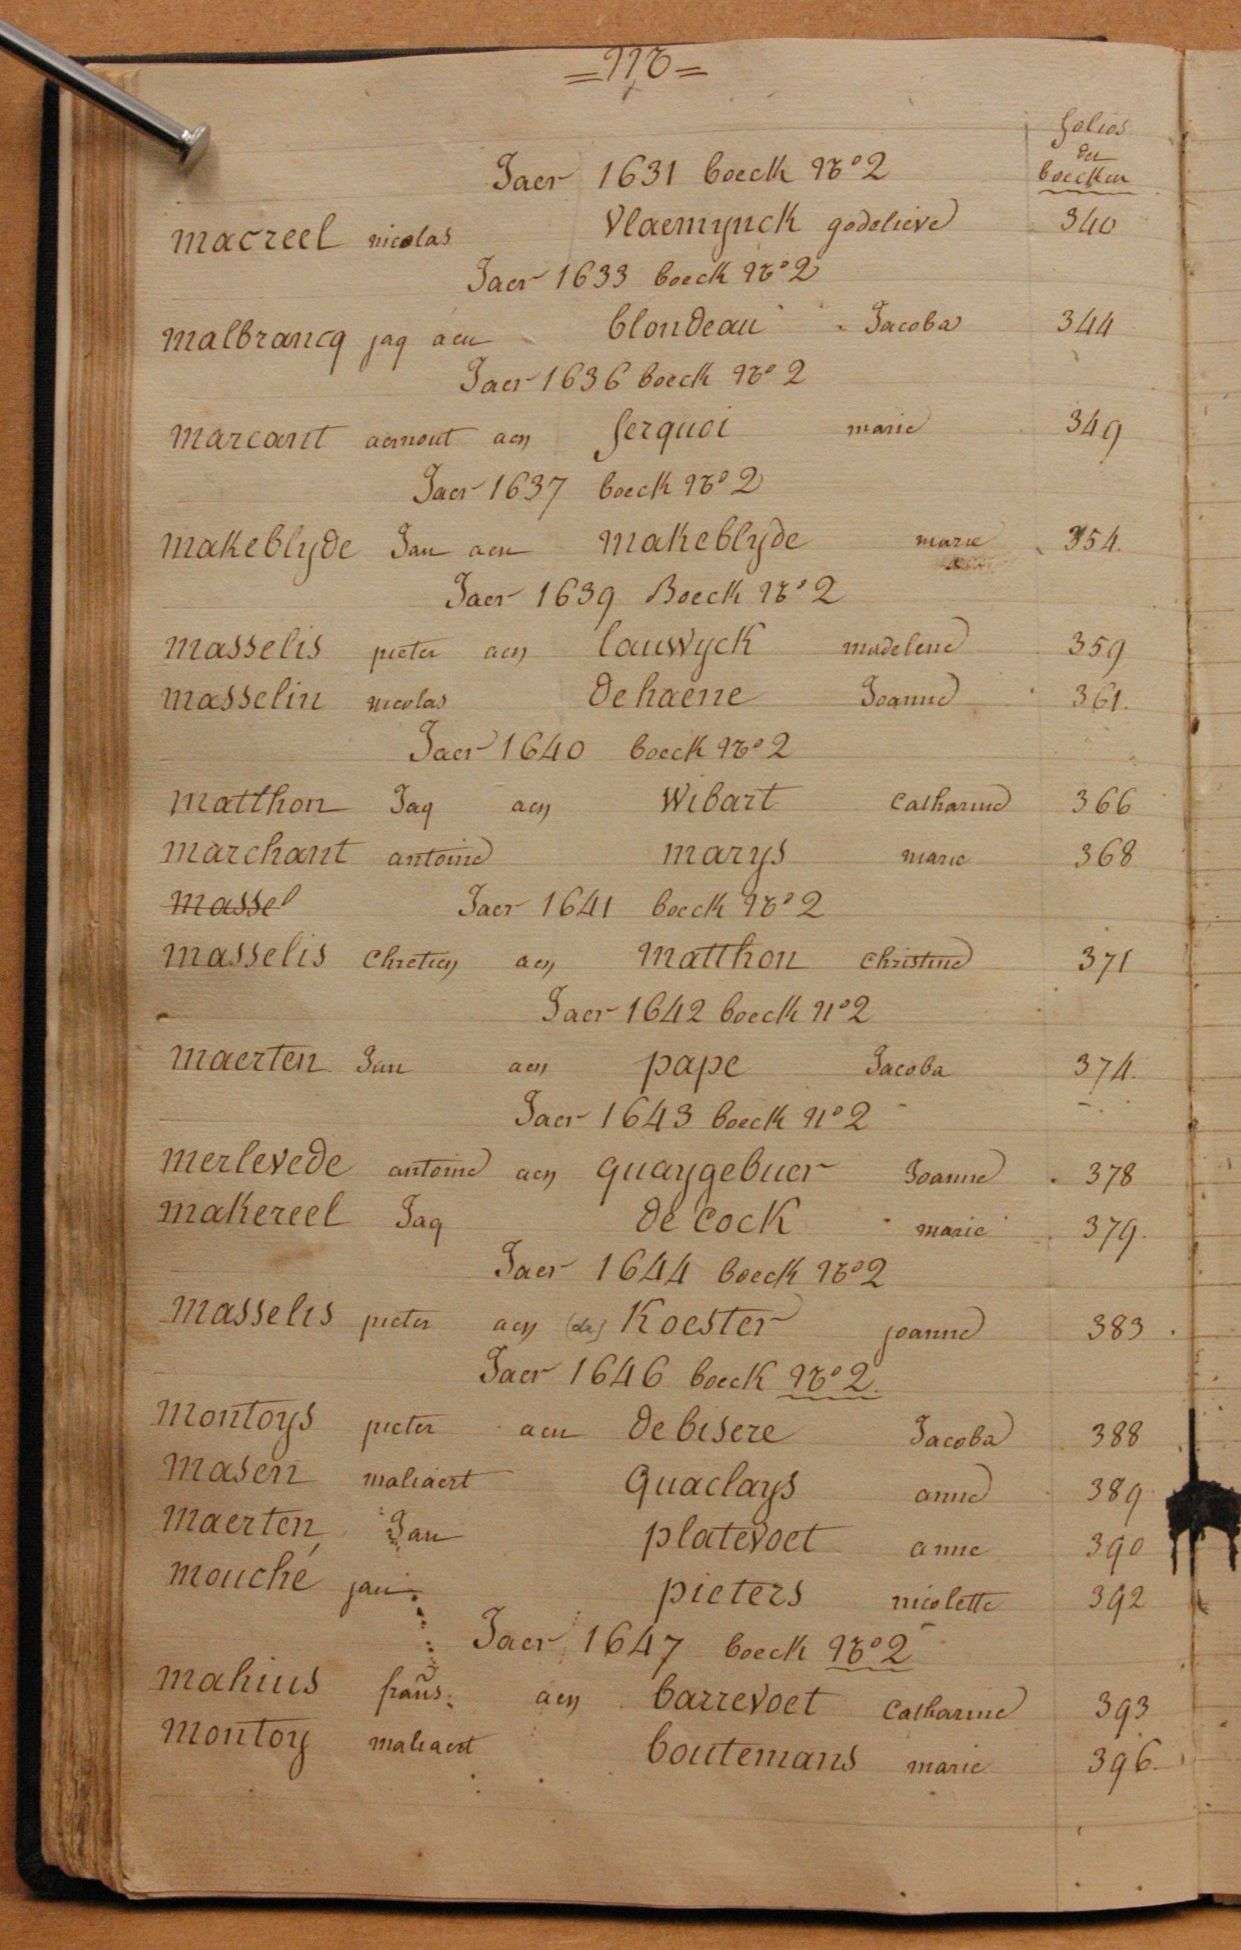 folios
der
boecken
Jaer 1631 boeck No 2
macreel nicolas vlaemynck godelieve 340
Jaer 1633 boeck No 2
malbrancq jaq aen blondeau Jacoba 344
Jaer 1636 boeck No 2
marcant aernout aen ferquoi marie 349
Jaer 1637 boeck No 2
makeblyde Jan aen makeblyde marie 354.
Jaer 1639 Boeck No 2
masselis pieter aen lauwyck madelene 359
masselin nicolas dehaene Joanne 361.
Jaer 1640 boeck No 2
matthon Jaq aen wibart catharine 366
marchant antoine marys marie 368
massel Jaer 1641 boeck No 2
masselis chretien aen matthon christine 371
Jaer 1642 boeck No 2
maerten Jan aen pape Jacoba 374.
Jaer 1643 boeck No 2
merlevede antoine aen quaygebuer Joanne 378
makereel Jaq de cock marie 379.
Jaer 1644 boeck No 2
masselis pieter aen (de) Koester joanne 383
Jaer 1646 boeck No 2.
montoys pieter aen debisere Jacoba 388
masen maliaert quaclays anne 389
maerten Jan platevoet anne 390
mouché jan pieters nicolette 392
Jaer 1647 boeck No 2
mahius frans. aen barrevoet catharine 393
montoy maliaert boutemans marie 396.